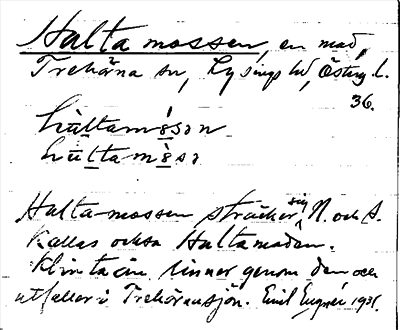 Halta mossen, en mad,
Trehörna sn, Lysings hd, Östergl.
36.
hùltamò̱san
hùltamò̱sa
Halta-mossen sträcker sig N. och S.
Kallas också Haltamaden.
Klintaån rinner genom den och
utfaller i Trehörnasjön. Emil Engnér 1935.